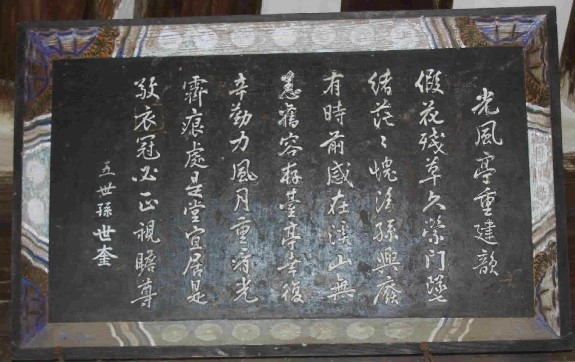 光風亭重建韻
假花殘草久榮門墜
緒茫〻愧後孫興廢
有時前感在溪山無
恙舊容存臺亭幸復
辛勤力風月重光
霽痕處是堂宜居是
敬衣冠必正視瞻尊
五世孫世奎